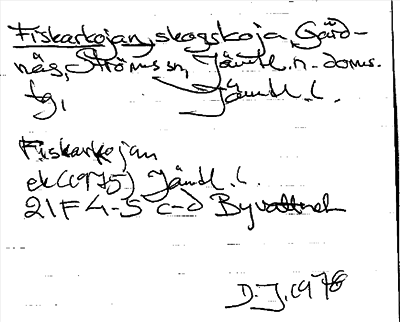 Fiskarkojan, skogskoja, Gärd-
näs, Ströms sn, Jämtl. n. doms.
tg, Jämtl. l.
Fiskarkojan
ek (1975) Jämtl. l.
21F 4-5 c-d Byvattnet
D.J. 1978